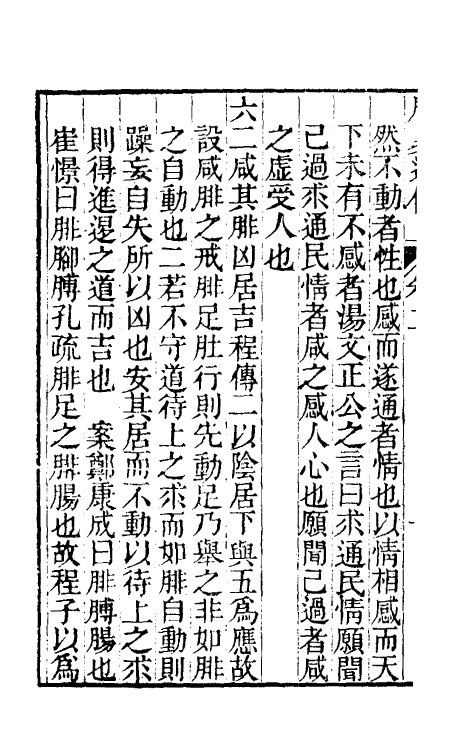 然不動者性也感而遂通者情也以情相感而天
下未有不感者湯文正公之言曰求通民情願聞
己過求通民情者咸之感人心也願聞己過者咸
之虛受人也
六二咸其腓凶居吉程傳二以陰居下與五爲應故
設咸腓之戒腓足肚行則先動足乃舉之非如腓
之自動也二若不守道待上之求而如腓自動則
躁妄自失所以凶也安其居而不動以待上之求
則得進退之道而吉也　案鄭康成曰腓膊腸也
崔憬曰腓腳膊孔疏腓足之腓腸也故程子以爲